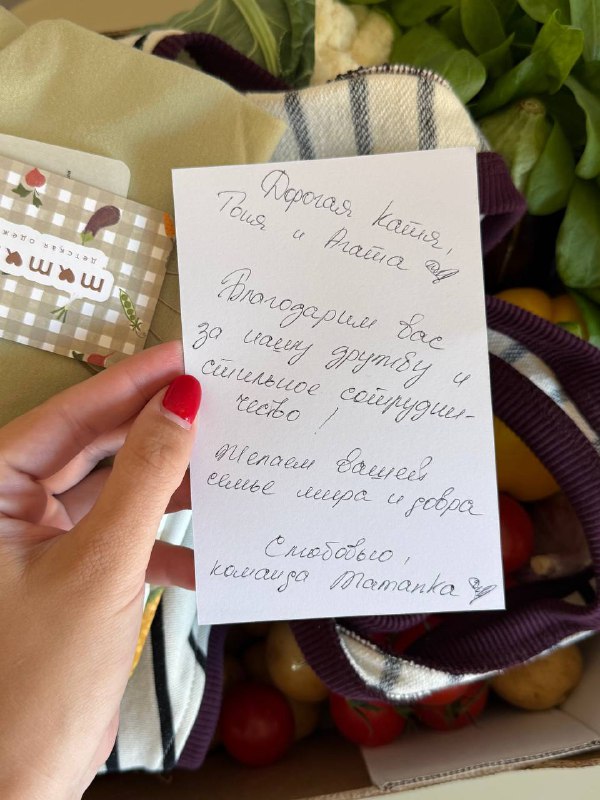 Дорогая Катя,
Тоня и Агата
Благодарим вас
за нашу дружбу и
стильное сотрудни-
чество!
Желаем вашей
семье мира и добра
С любовью,
команда Mamanka
детская одеж